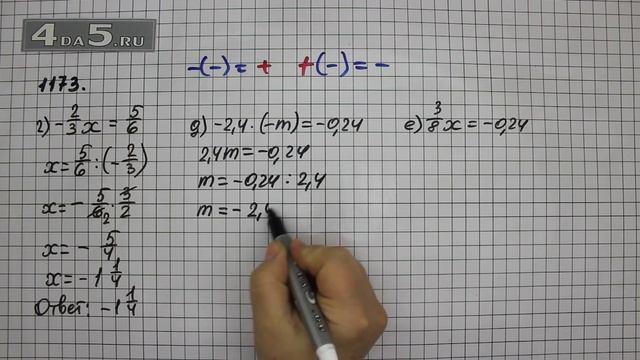 4DA5.RU
-(-)=+ +(-)=-
1173.
г) -2/3 x = 5/6
x = 5/6 : (-2/3)
x = - 5/6 2 · 3/2
x = - 5/4
x = -1 1/4
Ответ: -1 1/4
д) -2,4 · (-m) = -0,24
2,4m = -0,24
m = -0,24 : 2,4
m = - 2,4
е) 3/8 x = -0,24